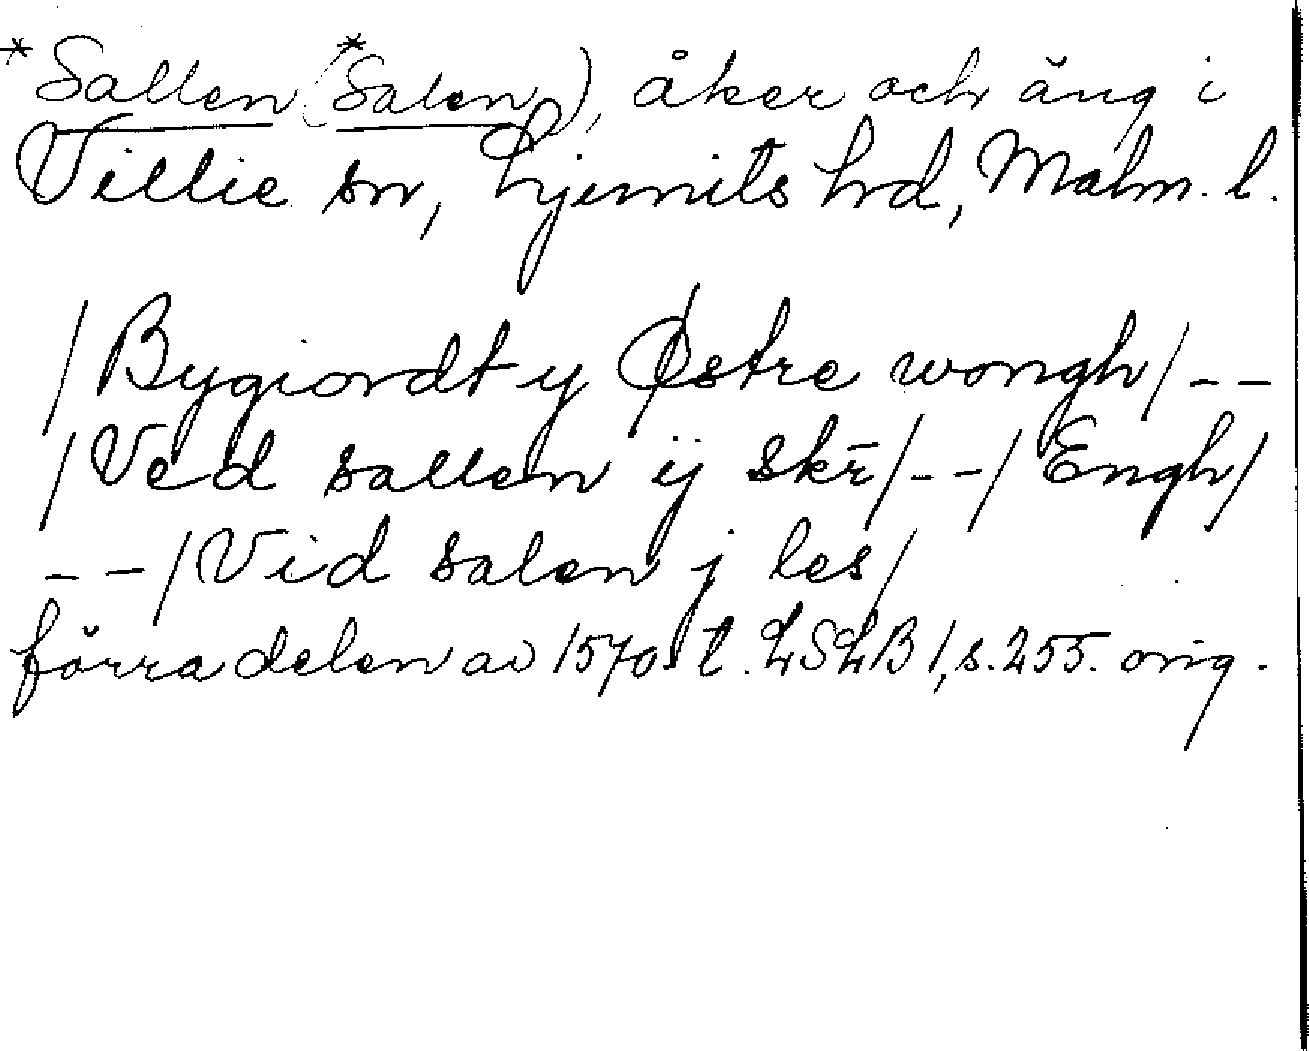 *Sallen (*Salen), åker och äng i
Villie sn, Ljunits hrd, Malm. l.
/Bygiordt y Østre wongh/--
/Ved sallen ij skr̄/--/Engh/
--/Vid salen j les/
förra delen av 1570st. LSLB 1, s. 255. orig.